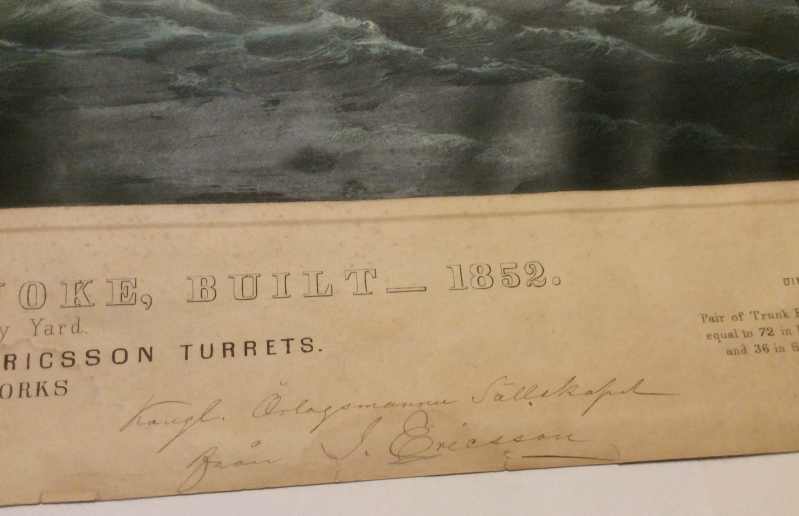 NOKE, BUILT — 1852.
y Yard.
RICSSON TURRETS.
ORKS
Kongl. Örlogsmanna Sällskapet
från J. Ericsson
Pair of Trunk
equal to 72 in
and 36 in S